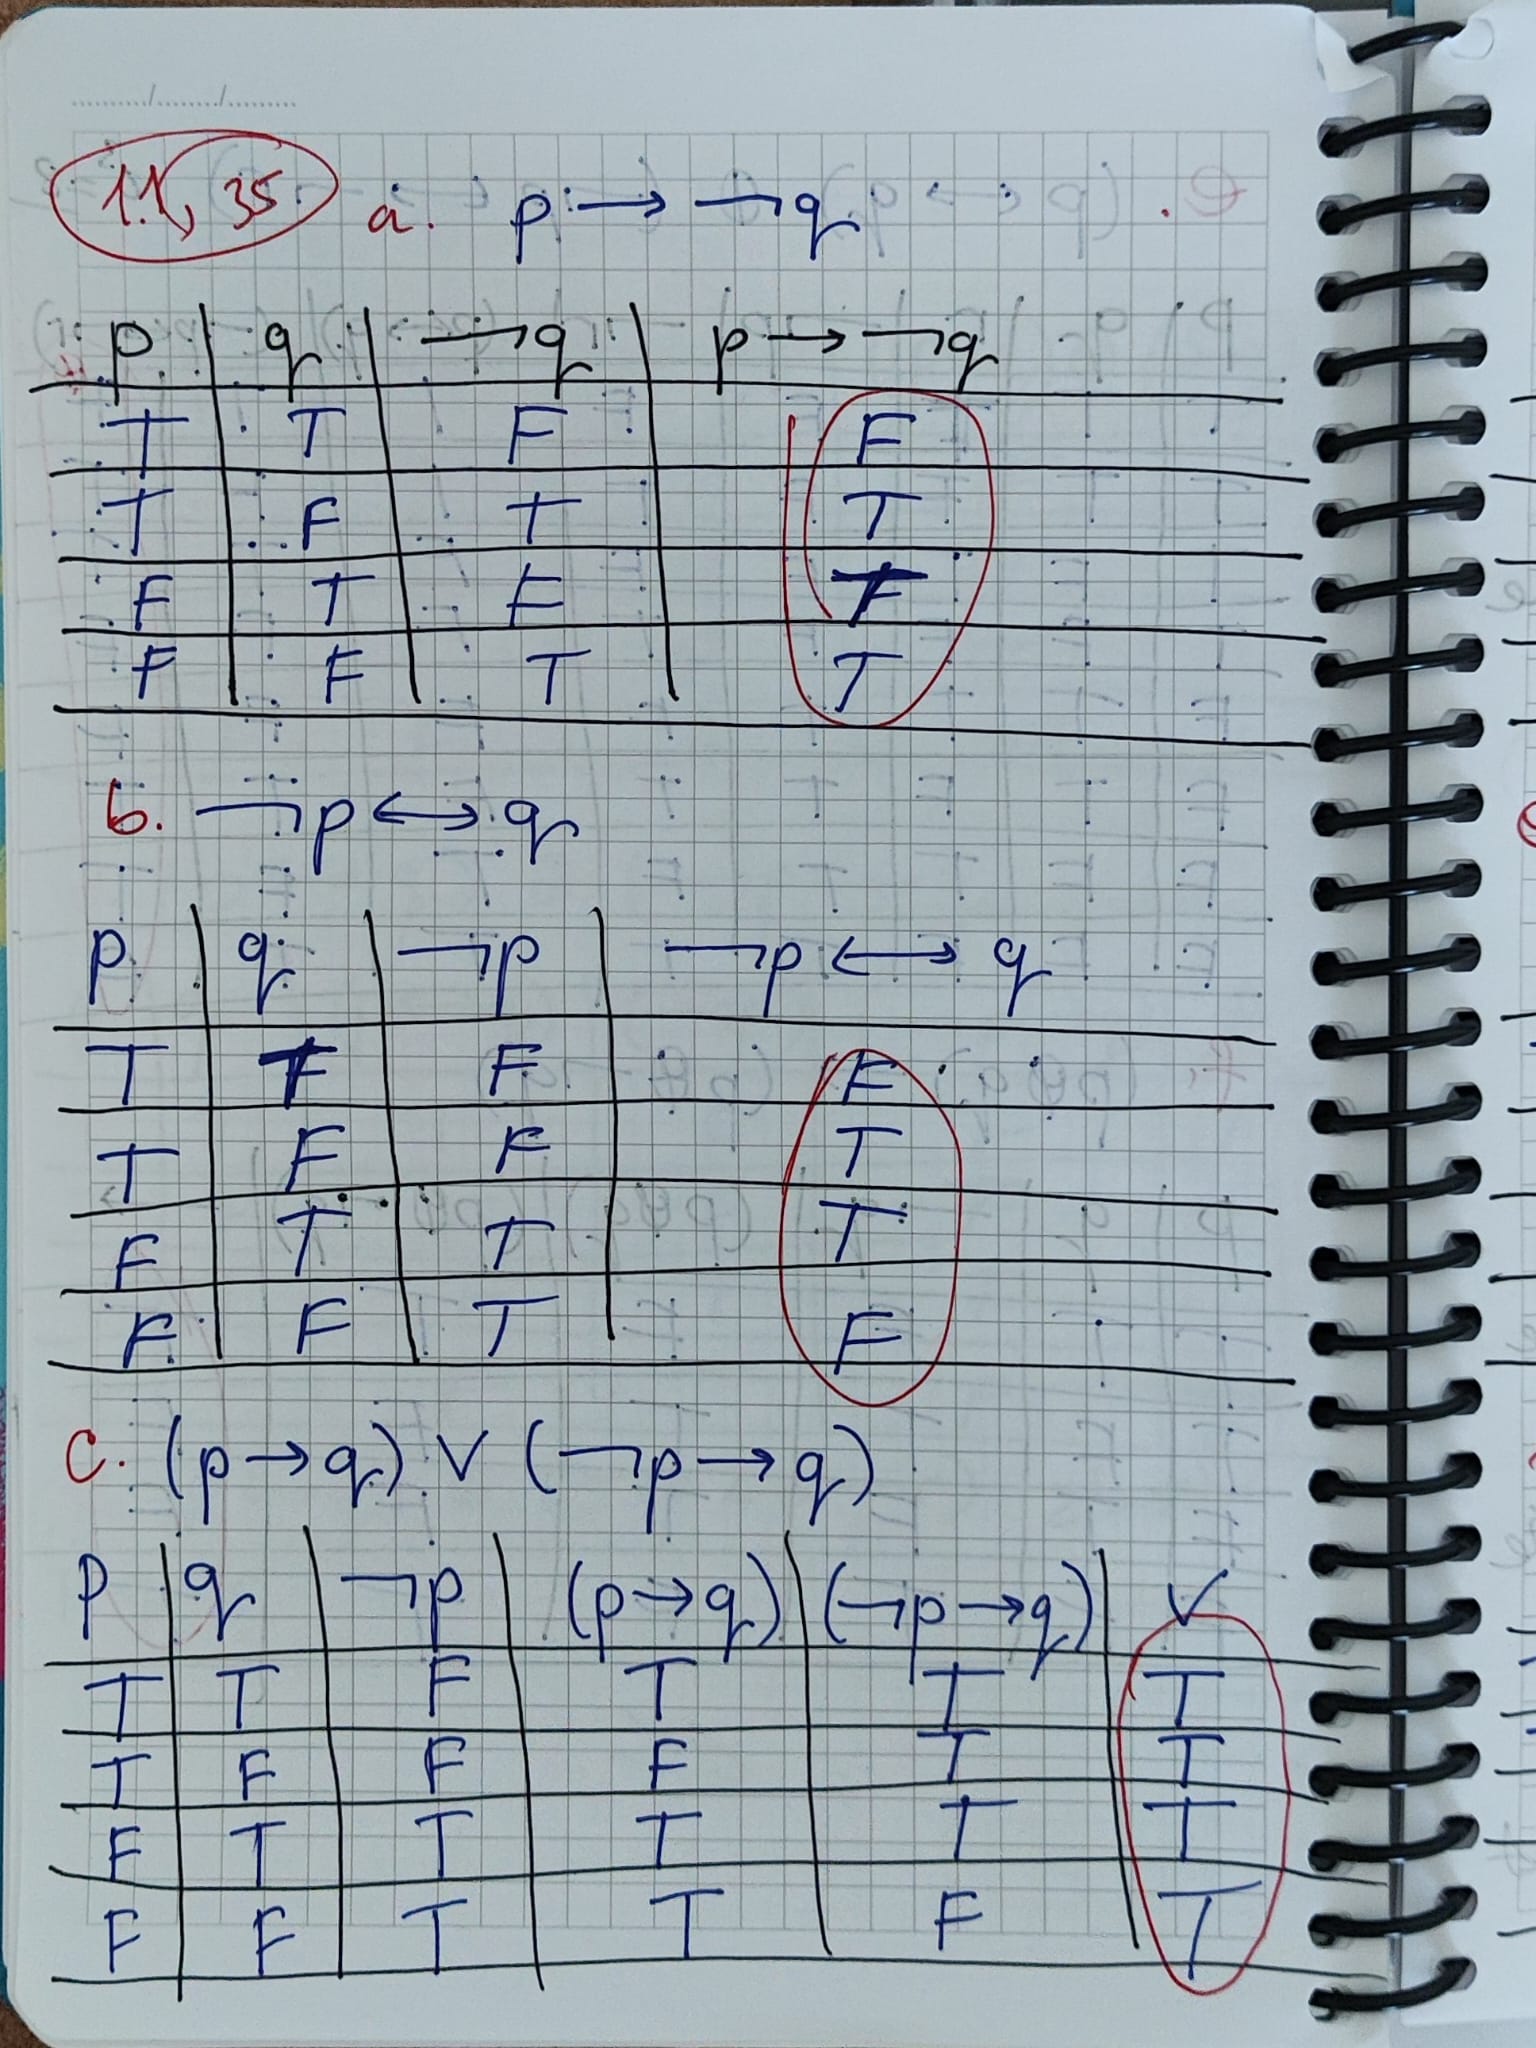 1.1, 35 a. p → ¬q
p q ¬q p → ¬q
T T F F
T F T T
F T F T
F F T T
b. ¬p ↔ q
p q ¬p ¬p ↔ q
T T F F
T F F T
F T T T
F F T F
c. (p → q) ∨ (¬p → q)
p q ¬p (p → q) (¬p → q) ∨
T T F T T T
T F F F T T
F T T T T T
F F T T F T